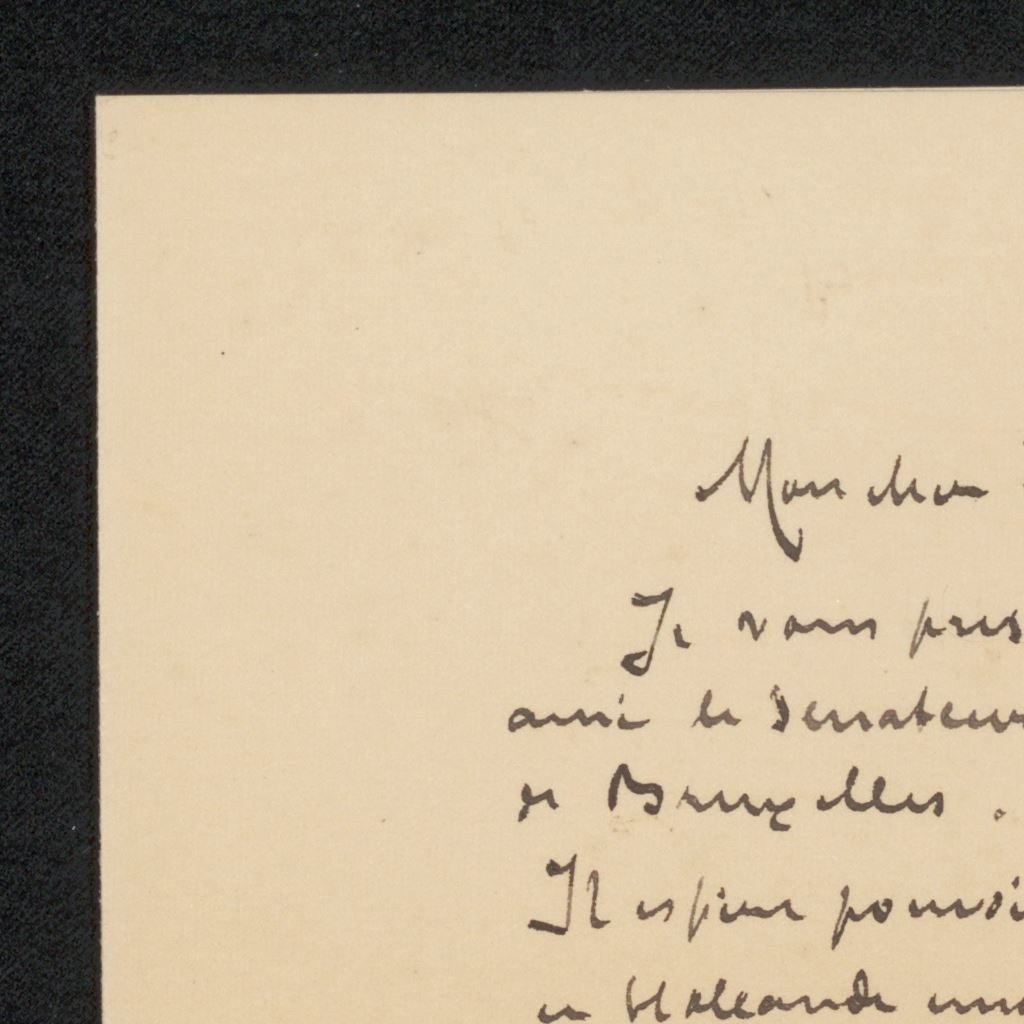 Mon cher
Je vous prés
ami le Sénateur
de Bruxelles.
Il espère pouvoi
en Hollande une